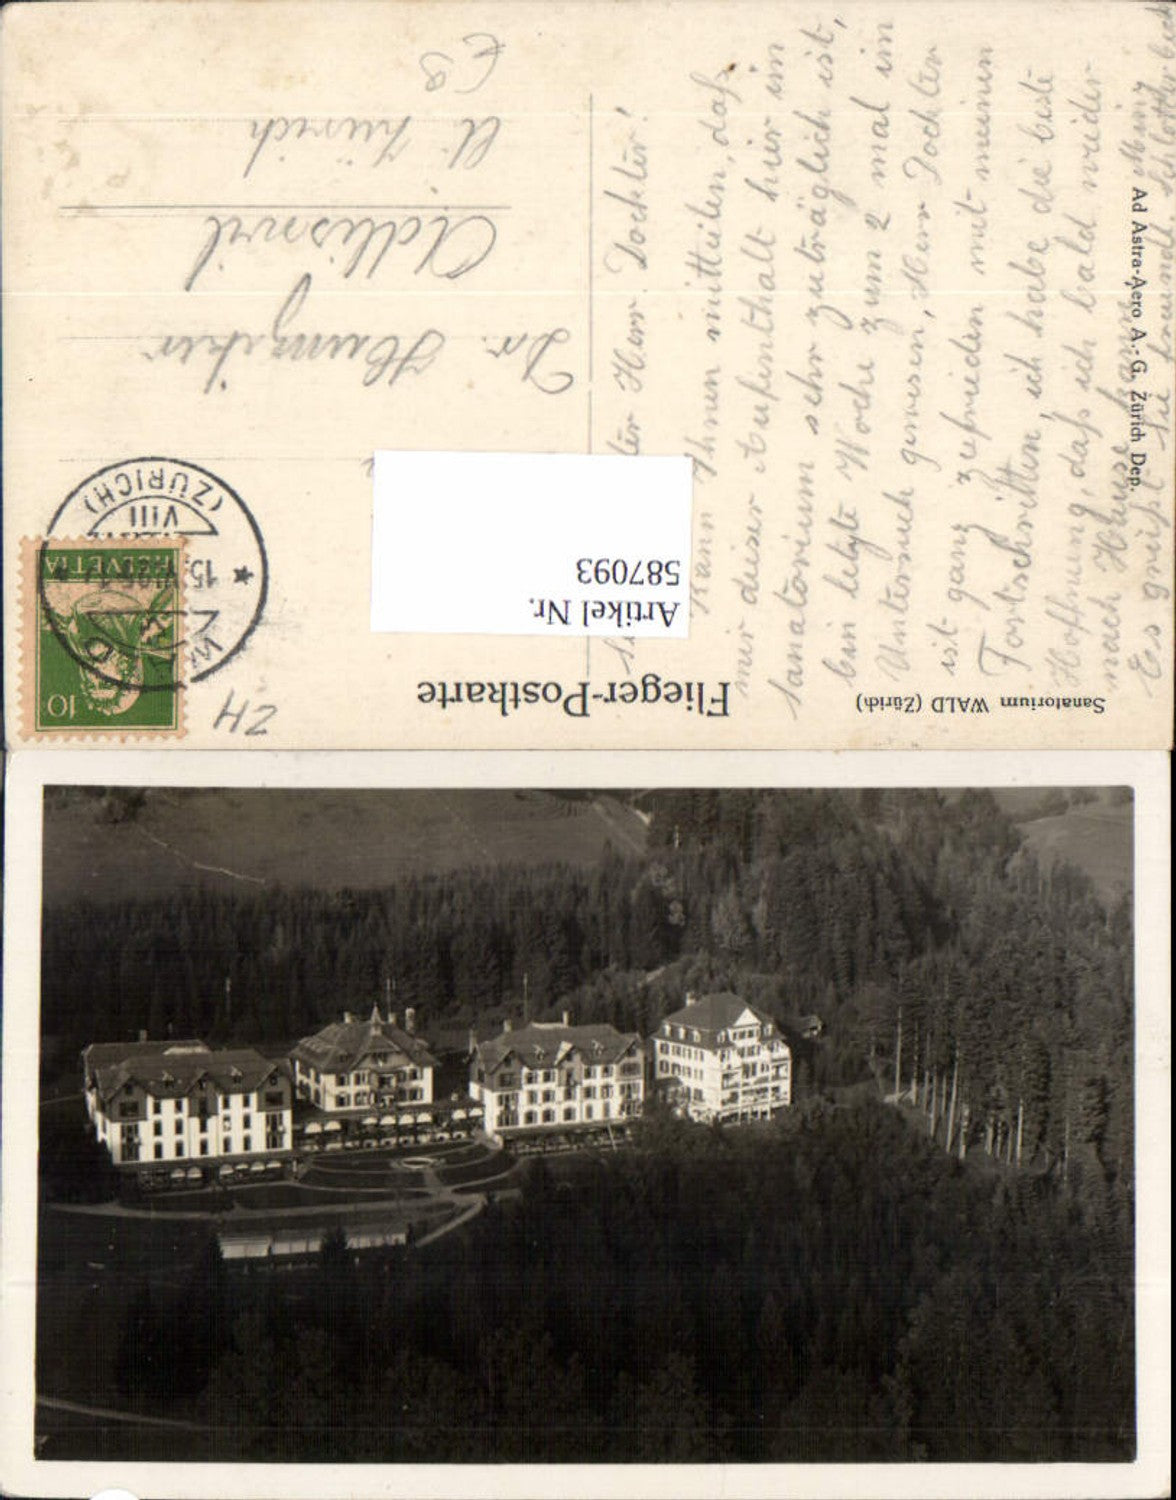 Flieger-Postkarte
Sanatorium WALD (Zürich)
Ad Astra-Aero A.-G. Zürich Dep.
Artikel Nr.
587093
HELVETIA
10
WALD
15. VI. 25.
VIII
(ZÜRICH)
ZH
Dr. Hunziker
Adliswil
Kt. Zürich
Herr Dockter!
kann Ihnen mitteilen, daß
mir dieser Aufenthalt hier im
Sanatorium sehr zuträglich ist,
bin letzte Woche zum 2 mal im
Untersuch gewesen, Herr Dockter
ist ganz zufrieden mit meinen
Fortschritten, ich habe die beste
Hoffnung, daß ich bald wieder
nach Hause kann
Es grüßt Sie freundl.